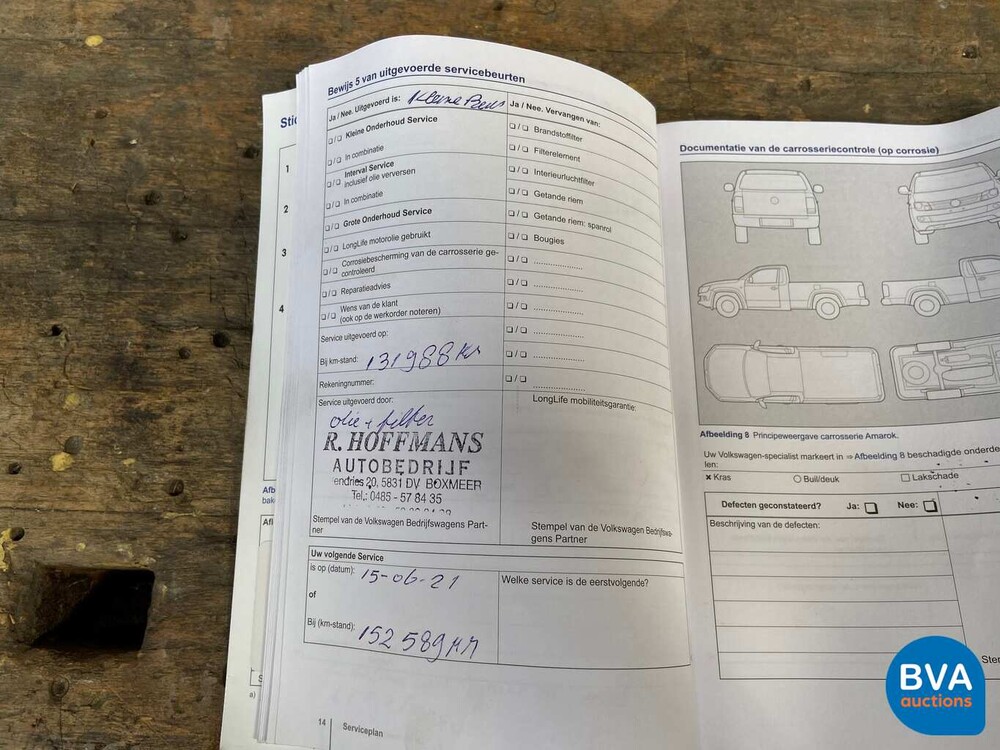 Bewijs 5 van uitgevoerde servicebeurten
Ja / Nee. Uitgevoerd is: Kleine Beus
Kleine Onderhoud Service
In combinatie
Interval Service
inclusief olie verversen
In combinatie
Grote Onderhoud Service
LongLife motorolie gebruikt
Corrosiebescherming van de carrosserie ge-
controleerd
Reparatieadvies
Wens van de klant
(ook op de werkorder noteren)
Service uitgevoerd op:
Bij km-stand: 131988 KM
Rekeningnummer:
Service uitgevoerd door:
olie + filter
R. HOFFMANS
AUTOBEDRIJF
endries 20, 5831 DV BOXMEER
Tel.: 0485 - 57 84 35
Stempel van de Volkswagen Bedrijfswagens Part-
ner
Ja / Nee. Vervangen van:
Brandstoffilter
Filterelement
Interieurluchtfilter
Getande riem
Getande riem: spanrol
Bougies
LongLife mobiliteitsgarantie:
Stempel van de Volkswagen Bedrijfswa-
gens Partner
Uw volgende Service
is op (datum): 15-06-21
of
Bij (km-stand): 152 589 KM
Welke service is de eerstvolgende?
14 Serviceplan
Stic
1
2
3
4
Documentatie van de carrosseriecontrole (op corrosie)
Afbeelding 8 Principeweergave carrosserie Amarok.
Uw Volkswagen-specialist markeert in ⇒ Afbeelding 8 beschadigde onderde
len:
× Kras
Buil/deuk
Lakschade
Defecten geconstateerd? Ja: Nee:
Beschrijving van de defecten:
Ster
BVA
auctions